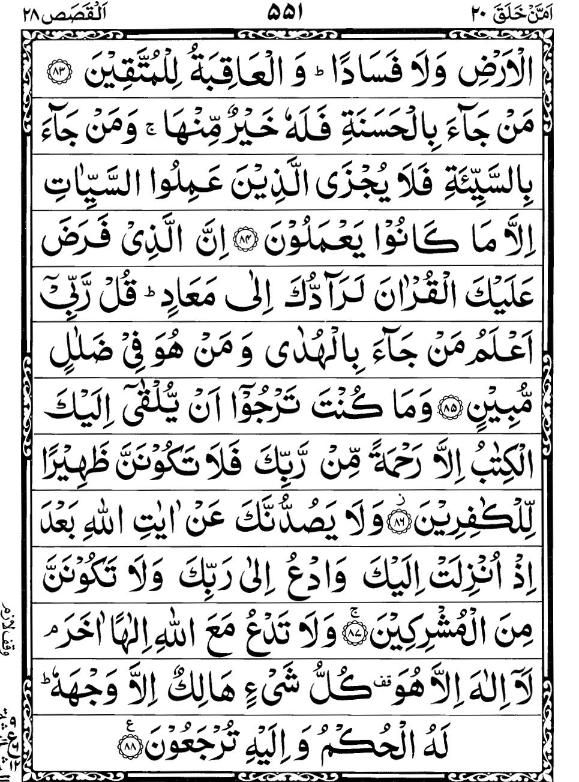 اَمَّنْ خَلَقَ ۲۰ ۵۵۱ اَلْقَصَص ۲۸
الْاَرْضِ وَلَا فَسَادًا ؕ وَ الْعَاقِبَةُ لِلْمُتَّقِيْنَ ۝۸۳
مَنْ جَآءَ بِالْحَسَنَةِ فَلَهٗ خَيْرٌ مِّنْهَا ۚ وَمَنْ جَآءَ
بِالسَّيِّئَةِ فَلَا يُجْزَى الَّذِيْنَ عَمِلُوا السَّيِّاٰتِ
اِلَّا مَا كَانُوْا يَعْمَلُوْنَ ۝۸۴ اِنَّ الَّذِىْ فَرَضَ
عَلَيْكَ الْقُرْاٰنَ لَرَآدُّكَ اِلٰى مَعَادٍ ؕ قُلْ رَّبِّىْۤ
اَعْلَمُ مَنْ جَآءَ بِالْهُدٰى وَ مَنْ هُوَ فِىْ ضَلٰلٍ
مُّبِيْنٍ ۝۸۵ وَمَا كُنْتَ تَرْجُوْۤا اَنْ يُّلْقٰٓى اِلَيْكَ
الْكِتٰبُ اِلَّا رَحْمَةً مِّنْ رَّبِّكَ فَلَا تَكُوْنَنَّ ظَهِيْرًا
لِّلْكٰفِرِيْنَ ۝۸۶ ز وَلَا يَصُدُّنَّكَ عَنْ اٰيٰتِ اللّٰهِ بَعْدَ
اِذْ اُنْزِلَتْ اِلَيْكَ وَادْعُ اِلٰى رَبِّكَ وَلَا تَكُوْنَنَّ
مِنَ الْمُشْرِكِيْنَ ۝۸۷ ۚ وَلَا تَدْعُ مَعَ اللّٰهِ اِلٰهًا اٰخَرَ ۘ
لَاۤ اِلٰهَ اِلَّا هُوَ قف كُلُّ شَىْءٍ هَالِكٌ اِلَّا وَجْهَهٗ ؕ
لَهُ الْحُكْمُ وَ اِلَيْهِ تُرْجَعُوْنَ ۝۸۸ ع
وقف لازم